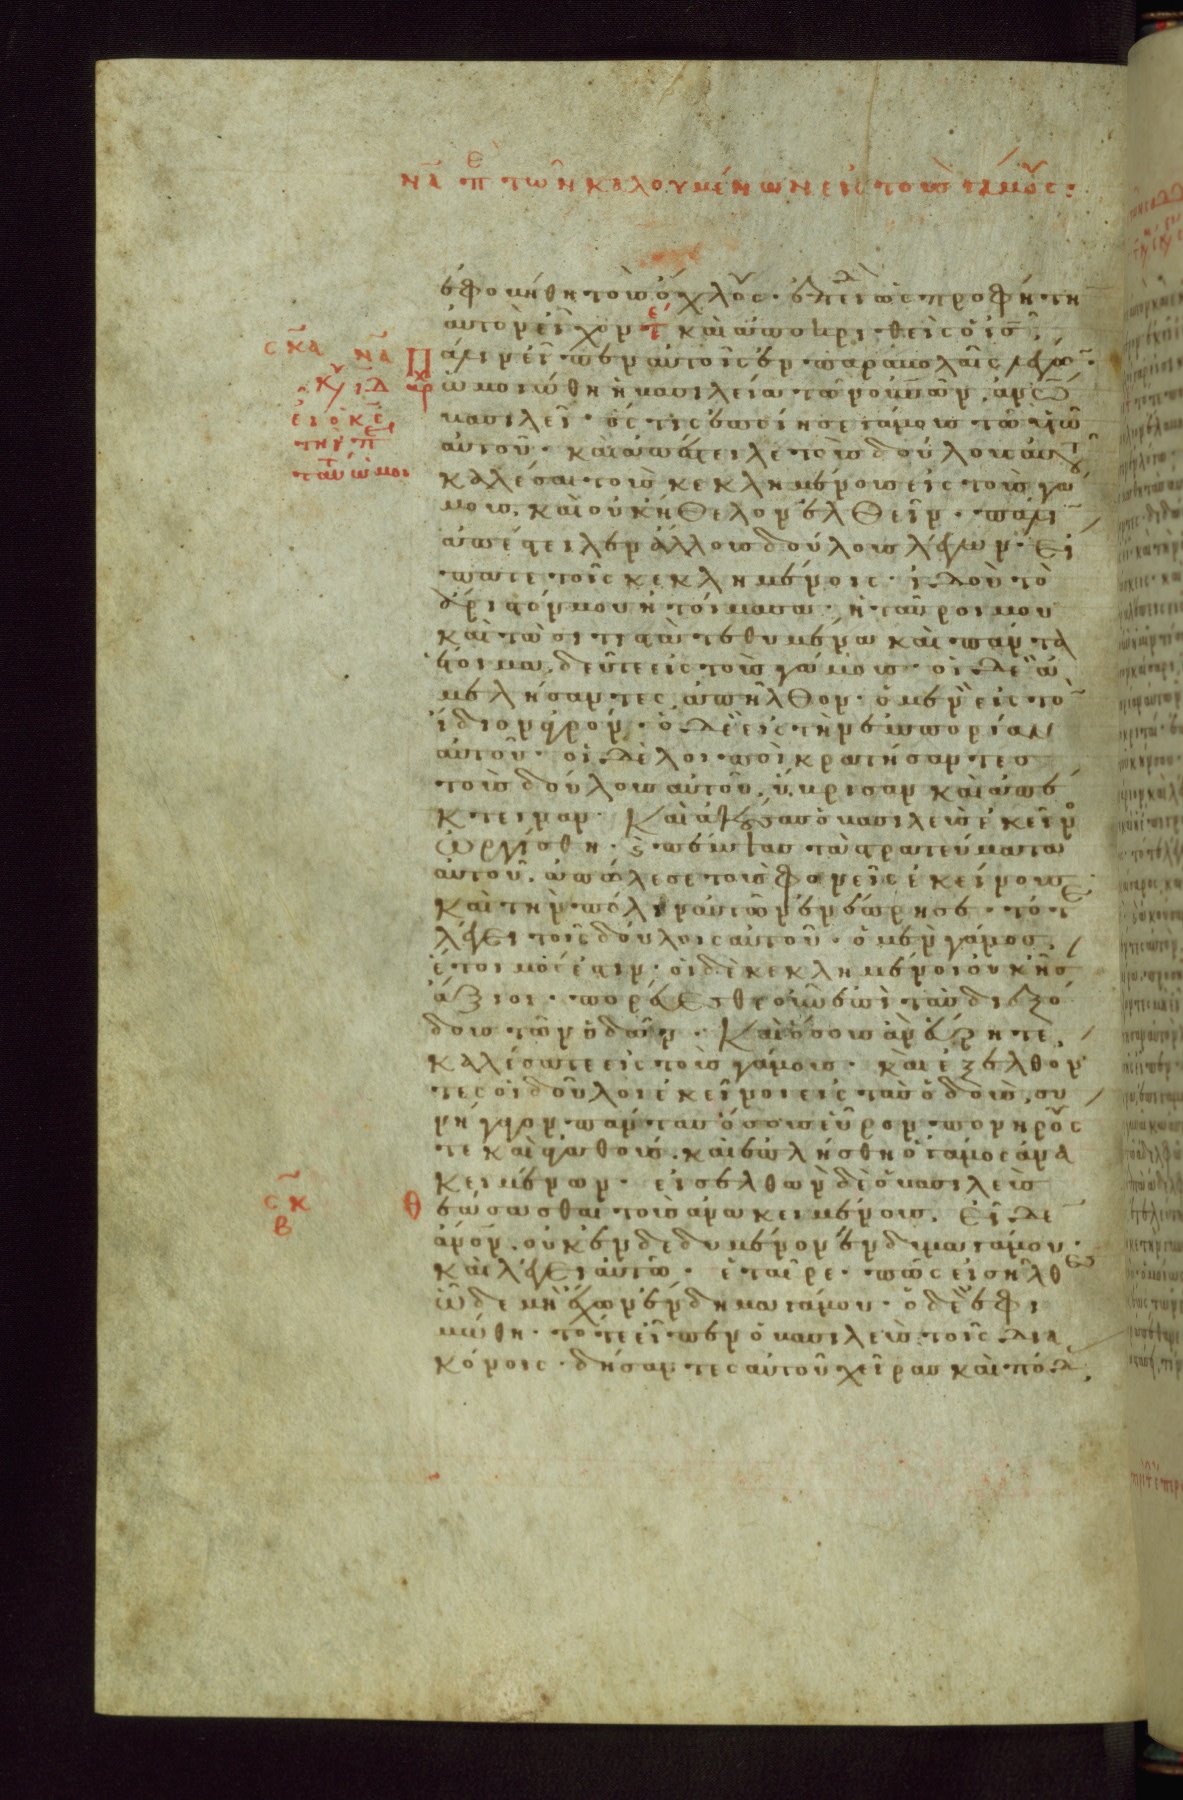 να πε τῶν καλουμένων εἰς τοὺς γάμους:
ἐφοβήθη τοὺς ὄχλους. ἐπειδὴ ὡς προφήτην
αὐτὸν εἶχον τε καὶ ἀποκριθεὶς ὁ ις
σκα να Πάλιν εἶπεν αὐτοῖς ἐν παραβολαῖς λέγων
κυ ιδ αρχ ὡμοιώθη ἡ βασιλεία τῶν οὐνῶν. ἀνω
βασιλεῖ. ὅς τις ἐποίησε γάμους τῶ υἱῶ
αὐτοῦ. καὶ ἀπέστειλε τοὺς δούλους αὐτοῦ
καλέσαι τοὺς κεκλημένους εἰς τοὺς γά
μους, καὶ οὐκ ἤθελον ἐλθεῖν. πάλιν
ἀπέστειλεν ἄλλους δούλους λέγων. εἴ
πατε τοῖς κεκλημένοις. ἰδοὺ τὸ
ἄριστόν μου ἡτοίμασα. ἡ ταῦροι μου
καὶ τὰ σιτιστὰ τεθυμένα καὶ πάντα
ἕτοιμα. δεῦτε εἰς τοὺς γάμους. οἱ δὲ ἀ
μελήσαντες ἀπῆλθον. ὁ μὲν εἰς τὸν
ἴδιον ἀγρόν. ὁ δὲ εἰς τὴν ἐμπορίαν
αὐτοῦ. οἱ δὲ λοιποὶ κρατήσαντες
τοὺς δούλους αὐτοῦ, ὕβρισαν καὶ ἀπέ
κτειναν. Καὶ ἀκούσας ὁ βασιλεὺς ἐκεῖνος
ὠργίσθη. καὶ πέμψας τὰ στρατεύματα
αὐτοῦ. ἀπώλεσε τοὺς φονεῖς ἐκείνους
καὶ τὴν πόλιν αὐτῶν ἐνέπρησε. τότε
λέγει τοῖς δούλοις αὐτοῦ. ὁ μὲν γάμος,
ἕτοιμός ἐστιν. οἱ δὲ κεκλημένοι οὐκ ἦσαν
ἄξιοι. πορεύεσθε οὖν ἐπὶ τὰς διεξό
δους τῶν ὁδῶν. Καὶ ὅσους ἂν εὕρητε,
καλέσατε εἰς τοὺς γάμους. καὶ ἐξελθόν
τες οἱ δοῦλοι ἐκεῖνοι εἰς τὰς ὁδοὺς, συ
νήγαγον πάντας ὅσους εὗρον πονηρούς
τε καὶ ἀγαθούς. καὶ ἐπλήσθη ὁ γάμος ἀνα
κειμένων. εἰσελθὼν δὲ ὁ βασιλεὺς
σκβ θεάσασθαι τοὺς ἀνακειμένους. εἶδε
ἄνον. οὐκ ἐνδεδυμένον ἔνδυμα γάμου.
καὶ λέγει αὐτῶ. ἑταῖρε. πῶς εἰσῆλθες
ὧδε μὴ ἔχων ἔνδημα γάμου. ὁ δὲ ἐφι
μώθη. τότε εἶπεν ὁ βασιλεὺς τοῖς δια
κόνοις. δήσαντες αὐτοῦ χεῖρας καὶ πόδας,